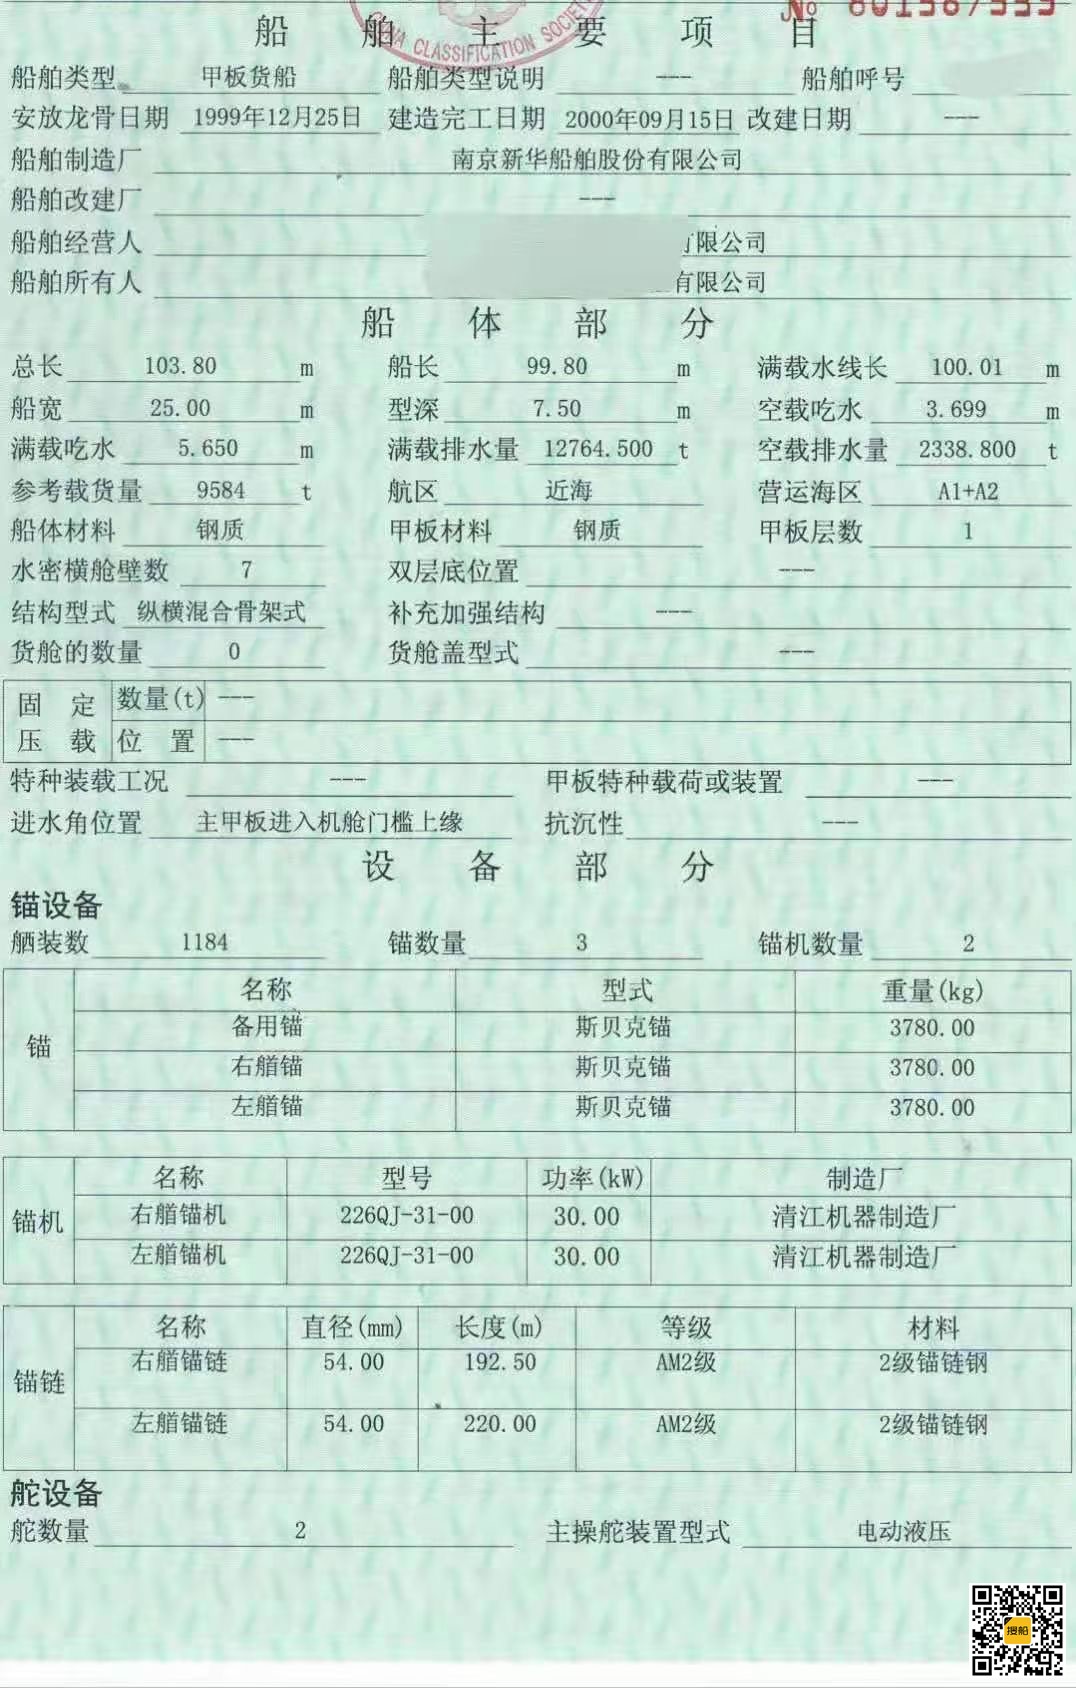 CHINA CLASSIFICATION SOCIETY
船舶主要项目
船舶类型 甲板货船 船舶类型说明 --- 船舶呼号
安放龙骨日期 1999年12月25日 建造完工日期 2000年09月15日 改建日期 ---
船舶制造厂 南京新华船舶股份有限公司
船舶改建厂 ---
船舶经营人 有限公司
船舶所有人 有限公司
船体部分
总长 103.80 m 船长 99.80 m 满载水线长 100.01 m
船宽 25.00 m 型深 7.50 m 空载吃水 3.699 m
满载吃水 5.650 m 满载排水量 12764.500 t 空载排水量 2338.800 t
参考载货量 9584 t 航区 近海 营运海区 A1+A2
船体材料 钢质 甲板材料 钢质 甲板层数 1
水密横舱壁数 7 双层底位置 ---
结构型式 纵横混合骨架式 补充加强结构 ---
货舱的数量 0 货舱盖型式 ---
固定压载 数量(t) ---
位置 ---
特种装载工况 --- 甲板特种载荷或装置 ---
进水角位置 主甲板进入机舱门槛上缘 抗沉性 ---
设备部分
锚设备
舾装数 1184 锚数量 3 锚机数量 2
锚 名称 型式 重量(kg)
备用锚 斯贝克锚 3780.00
右艏锚 斯贝克锚 3780.00
左艏锚 斯贝克锚 3780.00
锚机 名称 型号 功率(kW) 制造厂
右艏锚机 226QJ-31-00 30.00 清江机器制造厂
左艏锚机 226QJ-31-00 30.00 清江机器制造厂
锚链 名称 直径(mm) 长度(m) 等级 材料
右艏锚链 54.00 192.50 AM2级 2级锚链钢
左艏锚链 54.00 220.00 AM2级 2级锚链钢
舵设备
舵数量 2 主操舵装置型式 电动液压
搜船